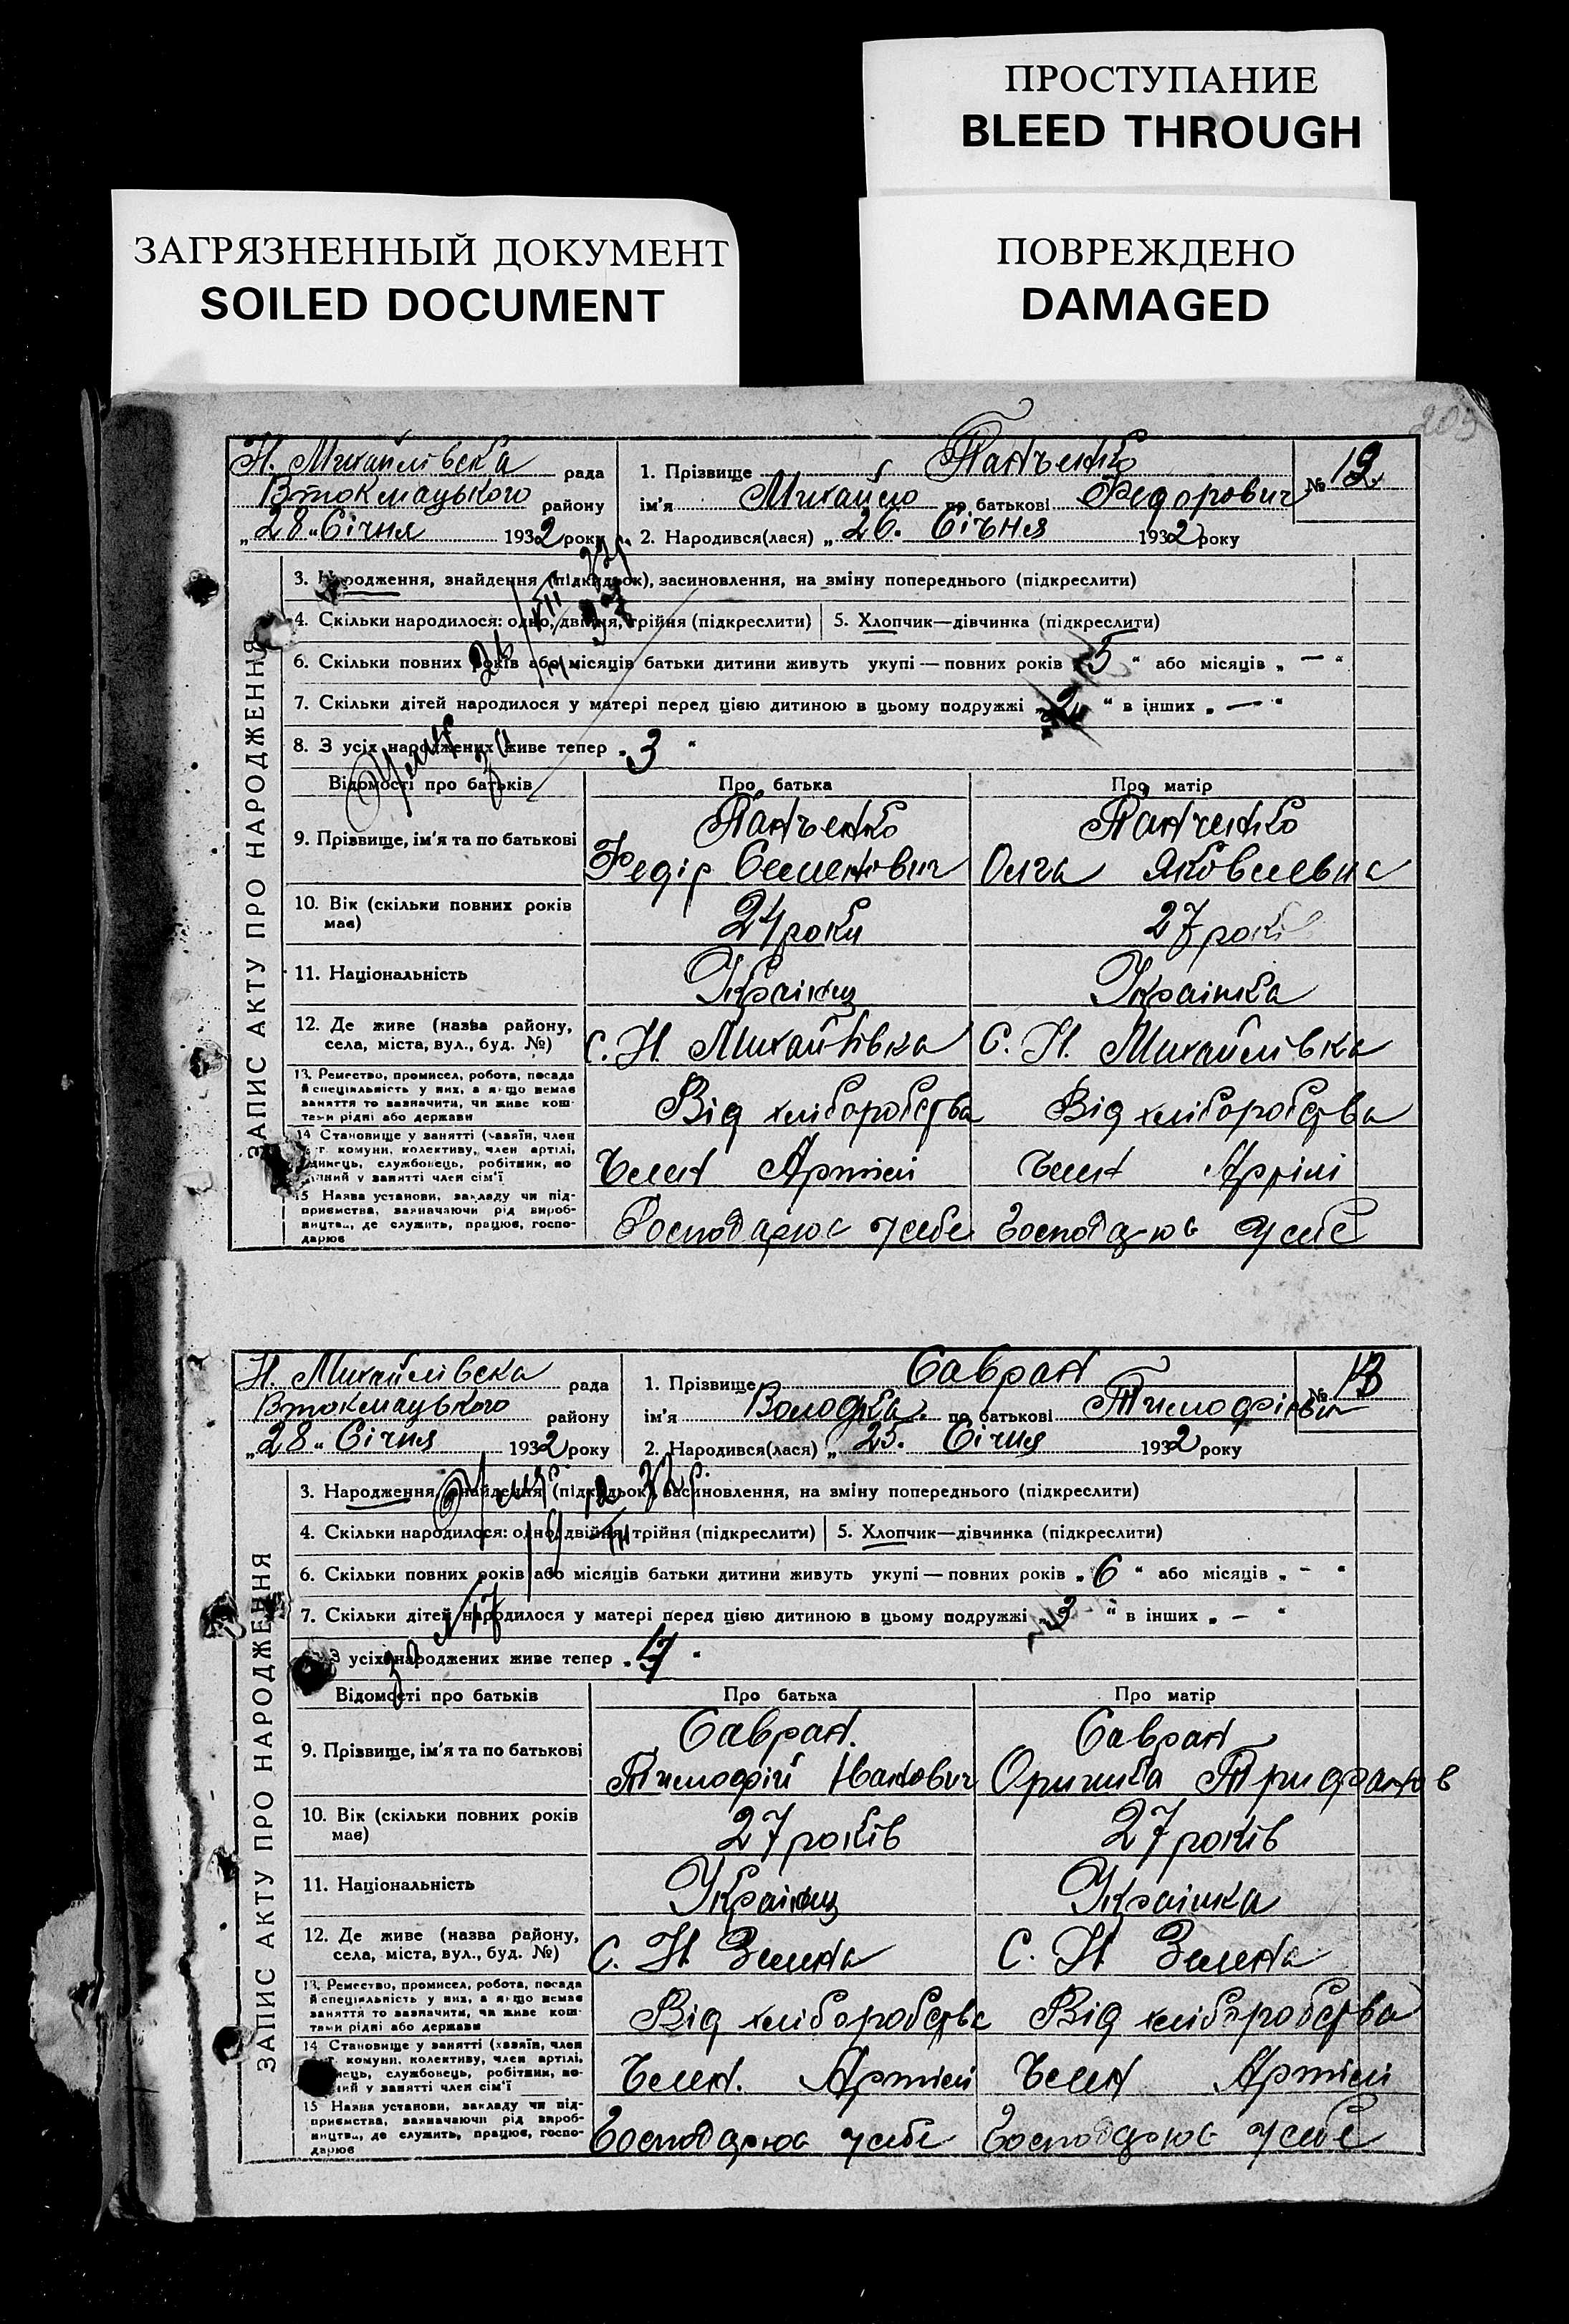 ПРОСТУПАНИЕ
BLEED THROUGH
ЗАГРЯЗНЕННЫЙ ДОКУМЕНТ
SOILED DOCUMENT
ПОВРЕЖДЕНО
DAMAGED
203
Н. Михайлівська рада
Втокмацького району
„28" Січня 1932 року
1. Прізвище Панченко
ім'я Михайло по батькові Федорович
№ 12
2. Народився(лася) „26. Січня 1932 року
ЗАПИС АКТУ ПРО НАРОДЖЕННЯ
3. Народження, знайдення (підкидьок), засиновлення, на зміну попереднього (підкреслити)
4. Скільки народилося: одно, двійня, трійня (підкреслити) 5. Хлопчик—дівчинка (підкреслити)
6. Скільки повних років або місяців батьки дитини живуть укупі — повних років „5" або місяців „—"
7. Скільки дітей народилося у матері перед цією дитиною в цьому подружжі „2" в інших „—"
8. З усіх народжених живе тепер „3"
Відомості про батьків Про батька Про матір
9. Прізвище, ім'я та по батькові
Панченко Панченко
Федір Семенович Олга Яковлевна
10. Вік (скільки повних років має) 24 роки 27 років
11. Національність Українец Українка
12. Де живе (назва району, села, міста, вул., буд. №) С. Н. Михайлівка С. Н. Михайлівка
13. Ремество, промисел, робота, посада й спеціяльність у них, а якщо немає заняття то зазначити, чи живе коштами рідні або держави
Від хліборобства Від хліборобства
14 Становище у занятті (хазяїн, член комуни, колективу, член артілі, службовець, робітник, у занятті член сім'ї
Член Артілі Член Артілі
15 Назва установи, закладу чи підприємства, зазначаючи рід виробництва, де служить, працює, господарює
Господарює у себе Господарює у себе
Н. Михайлівська рада
Втокмацького району
„28" Січня 1932 року
1. Прізвище Савран
ім'я Володька по батькові Тимофієвич
№ 13
2. Народився(лася) „25. Січня 1932 року
ЗАПИС АКТУ ПРО НАРОДЖЕННЯ
3. Народження, знайдення (підкидьок), засиновлення, на зміну попереднього (підкреслити)
4. Скільки народилося: одно, двійня, трійня (підкреслити) 5. Хлопчик—дівчинка (підкреслити)
6. Скільки повних років або місяців батьки дитини живуть укупі — повних років „6" або місяців „-"
7. Скільки дітей народилося у матері перед цією дитиною в цьому подружжі „3" в інших „—"
З усіх народжених живе тепер
Відомості про батьків Про батька Про матір
9. Прізвище, ім'я та по батькові
Савран. Савран
Тимофій Іванович Оришка Трифанов
10. Вік (скільки повних років має) 27 років 27 років
11. Національність Українец Українка
12. Де живе (назва району, села, міста, вул., буд. №) С. Н Зелена С. Н Зелена
13. Ремество, промисел, робота, посада й спеціяльність у них, а якщо немає заняття то зазначити, чи живе коштами рідні або держави
Від хліборобства Від хліборобства
14 Становище у занятті (хазяїн, член комуни, колективу, член артілі, службовець, робітник, у занятті член сім'ї
Член. Артілі Член Артілі
15 Назва установи, закладу чи підприємства, зазначаючи рід виробництва, де служить, працює, господарює
Господарює у себе Господарює у себе